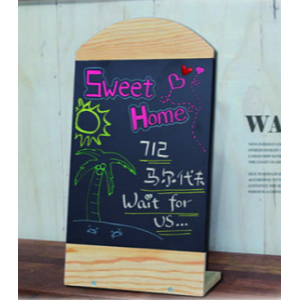 Sweet
Home
712
马尔代夫
Wait for
us...
WA